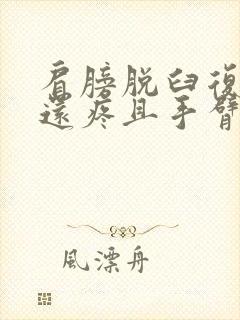 肩膀脱臼復
還疼且手臂
風漂舟